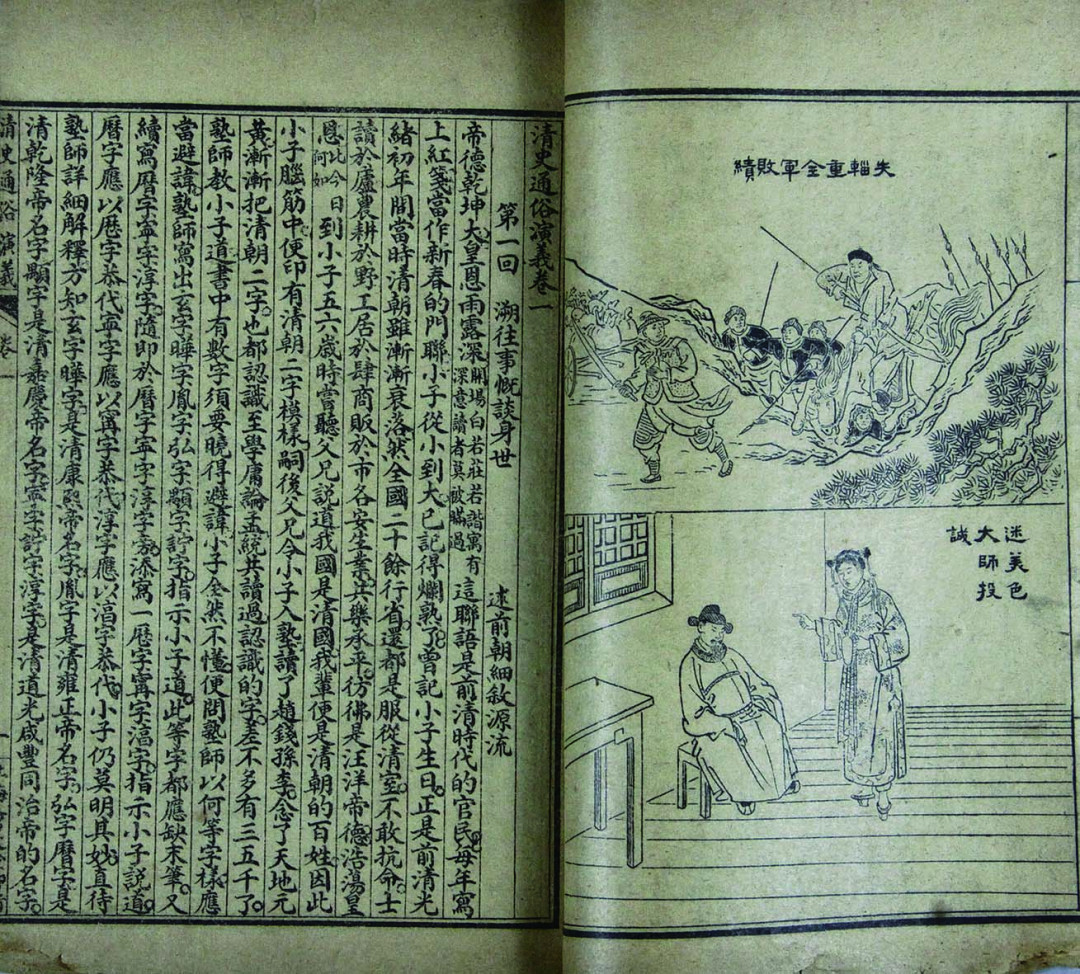 失輜重全軍敗績
迷美色
大師投
誠
清史通俗演義卷一
第一回 溯往事慨談身世 述前朝細敘源流
帝德乾坤大。皇恩雨露深。開場白若莊若諧寓有深意讀者莫被瞞過 這聯語是前清時代的官民。每年寫
上紅箋當作新春的門聯小子從小到大已記得爛熟了。曾記小子生日。正是前清光
緒初年間當時清朝雖漸漸衰落然全國二十餘行省。還都是服從清室。不敢抗命。士
讀於廬農耕於野工居於肆商販於市各安生業共樂承平。彷彿是汪洋帝德浩蕩皇
恩此今日何如 到小子五六歲時嘗聽父兄說道我國是清國我輩便是清朝的百姓。因此
小子腦筋中。便印有清朝二字模樣嗣後父兄令小子入塾讀了趙錢孫李。念了天地元
黃漸漸把清朝二字。也都認識至學庸論孟。統共讀過認識的字。差不多有三五千了。
塾師教小子道書中有數字須要曉得避諱小子全然不懂便問塾師以何等字樣。應
當避諱。塾師寫出玄字曄字胤字弘字顒字詝字。指示小子道。此等字都應缺末筆。又
續寫曆字寧字淳字。隨即於曆字寧字淳字旁添寫一歷字甯字湻字。指示小子說道。
曆字應以歷字恭代寧字應以甯字恭代淳字應以湻字恭代。小子仍莫明其妙直待
塾師詳細解釋方知玄字曄字。是清康熙帝名字。胤字是清雍正帝名字。弘字曆字是
清乾隆帝名字顒字是清嘉慶帝名字。寧字詝字淳字。是清道光咸豐同治帝的名字。
清史通俗演義 卷一